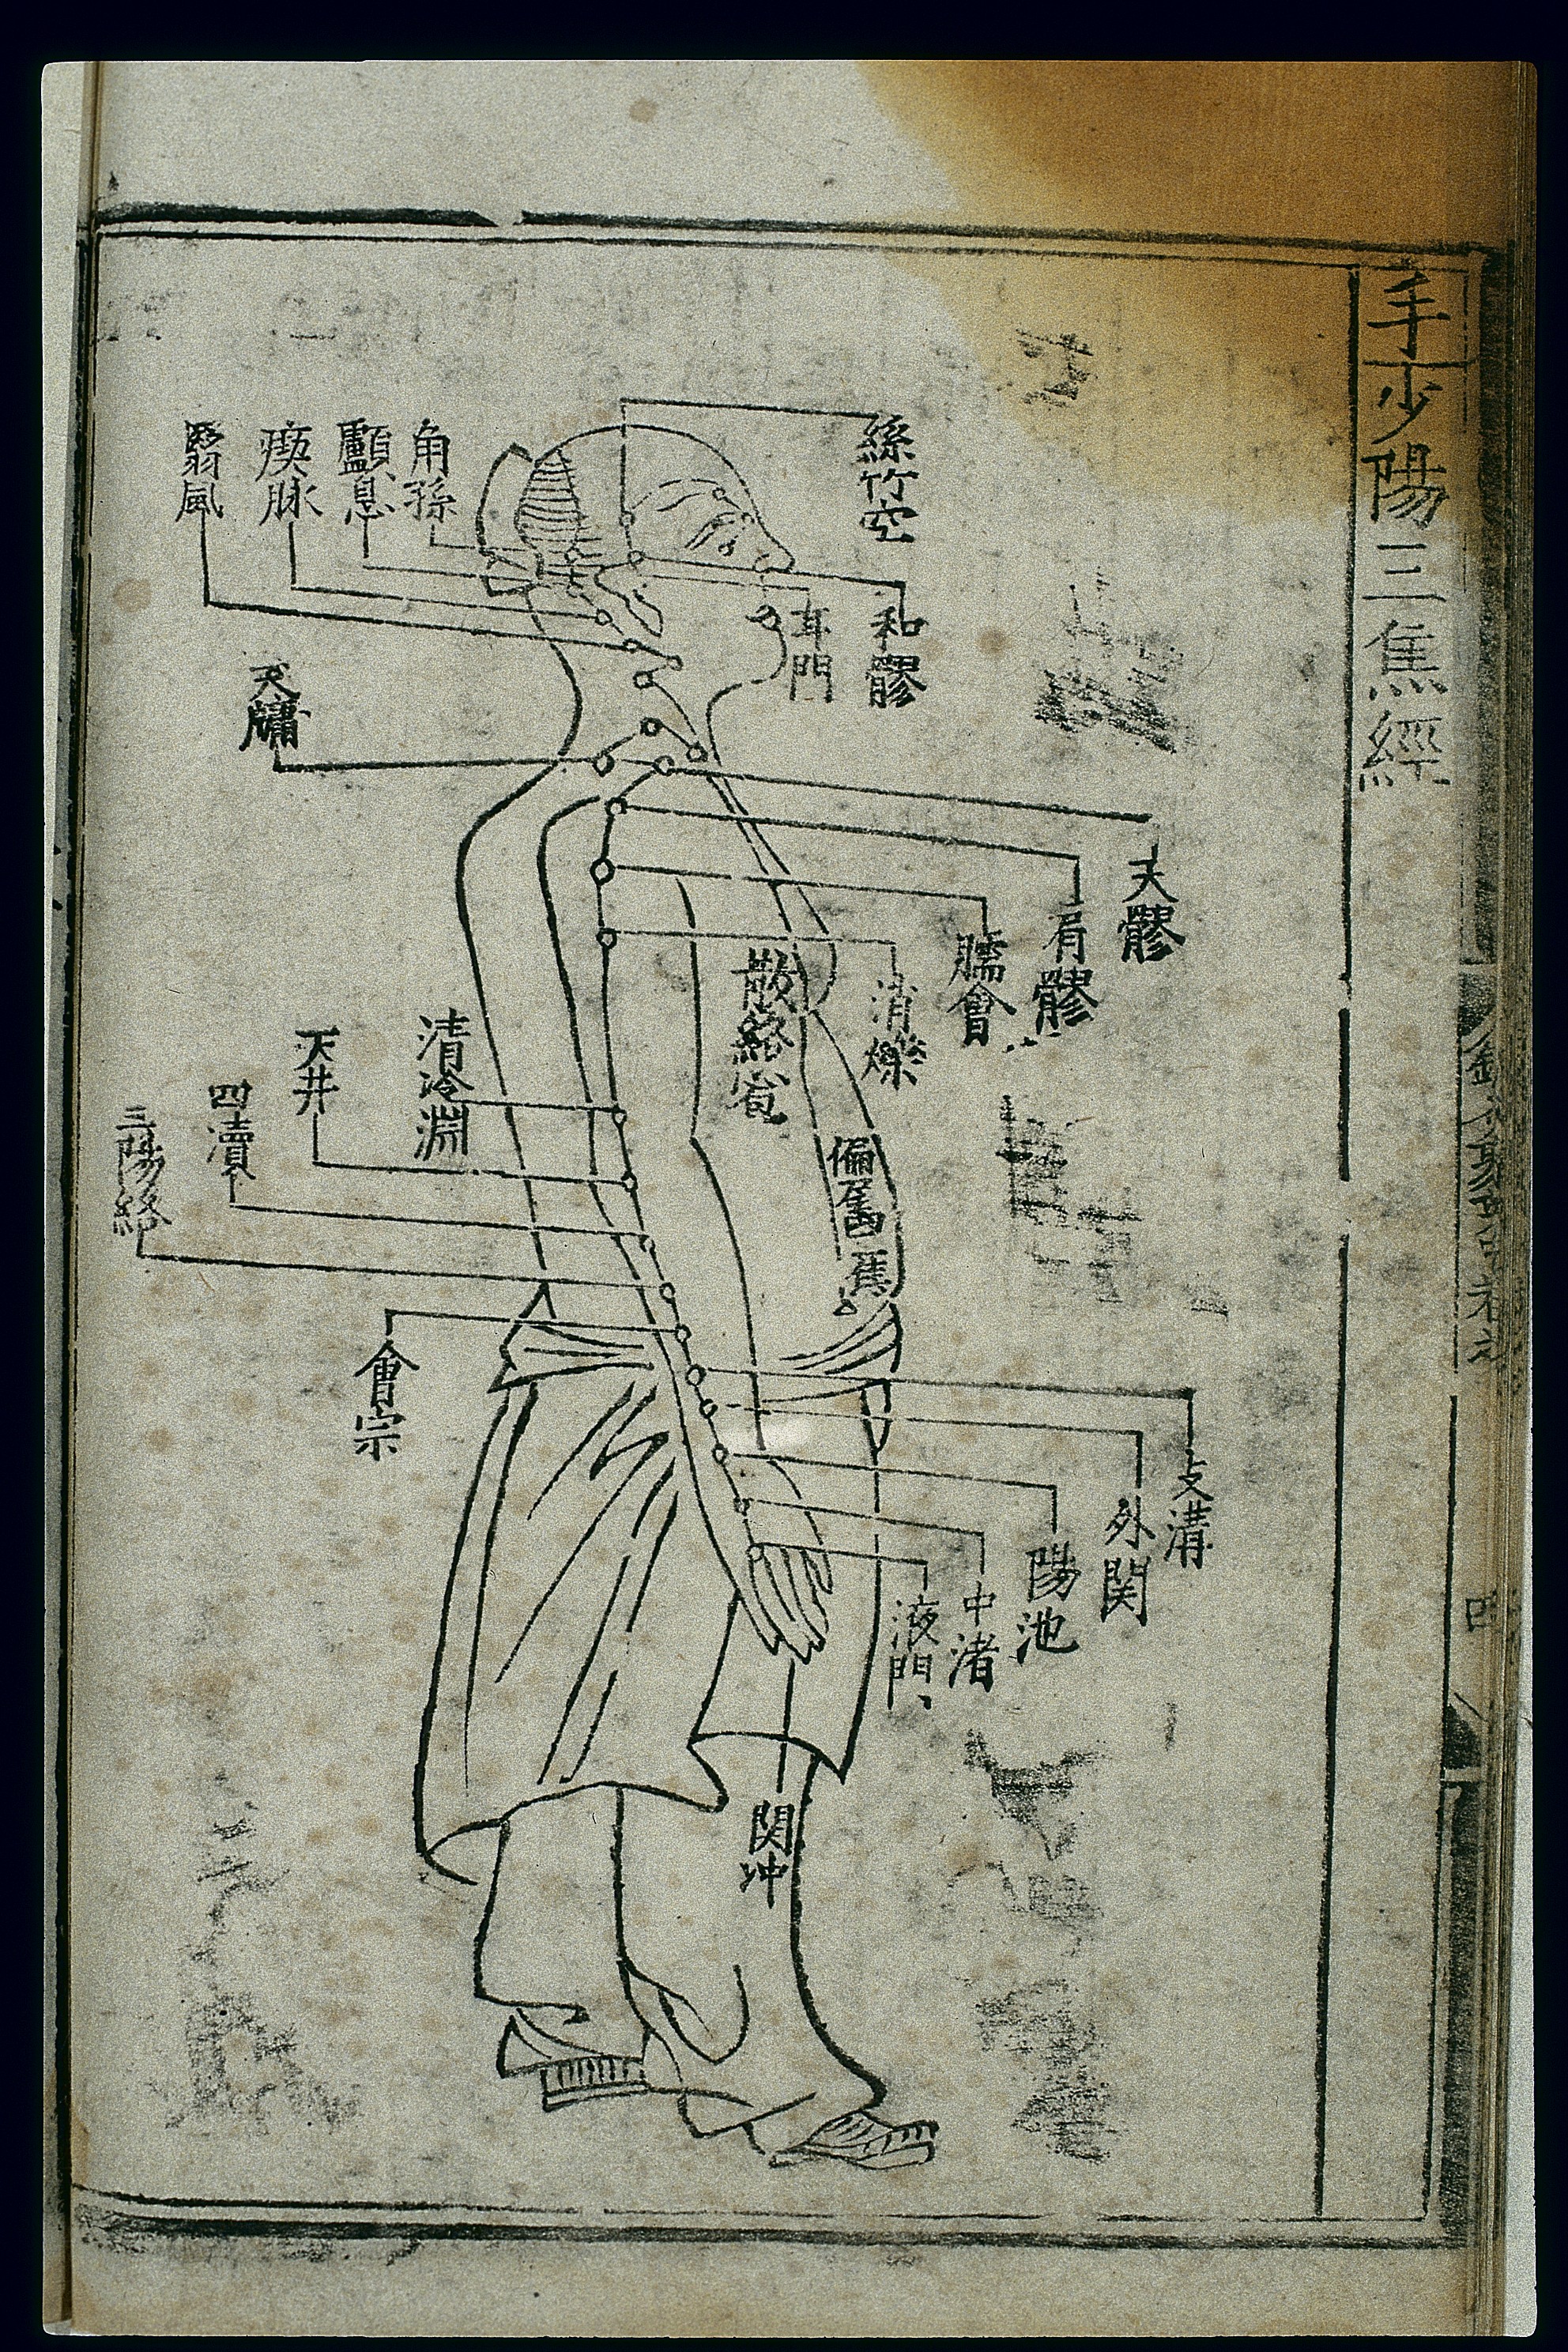 手少陽三焦經
絲竹空
角孫
顱息
瘈脉
翳風
和髎
耳門
天牖
天髎
肩髎
臑會
消爍
散絡
清冷淵
天井
四瀆
三陽絡
會宗
支溝
外関
陽池
中渚
液門
関冲